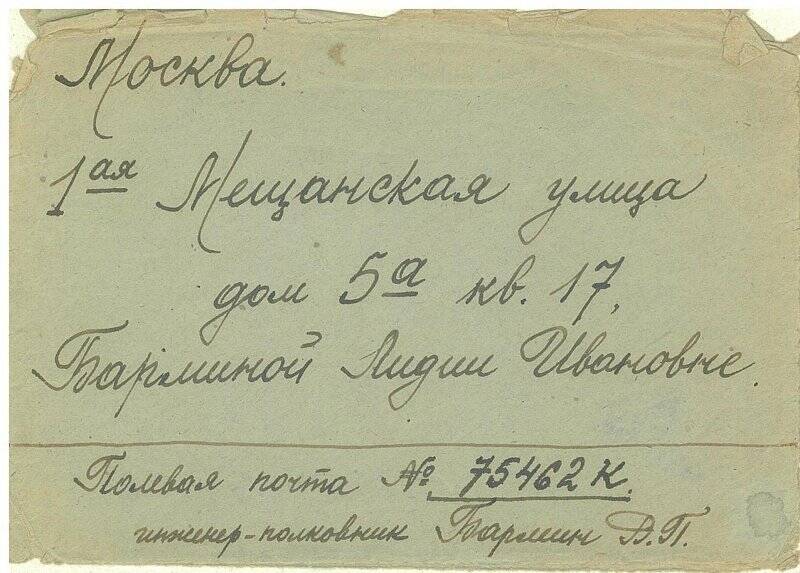 Москва.
1ая Мещанская улица
дом 5а кв. 17,
Барминой Лидии Ивановне.
Полевая почта № 75462 К.
инженер-полковник Бармин В.П.